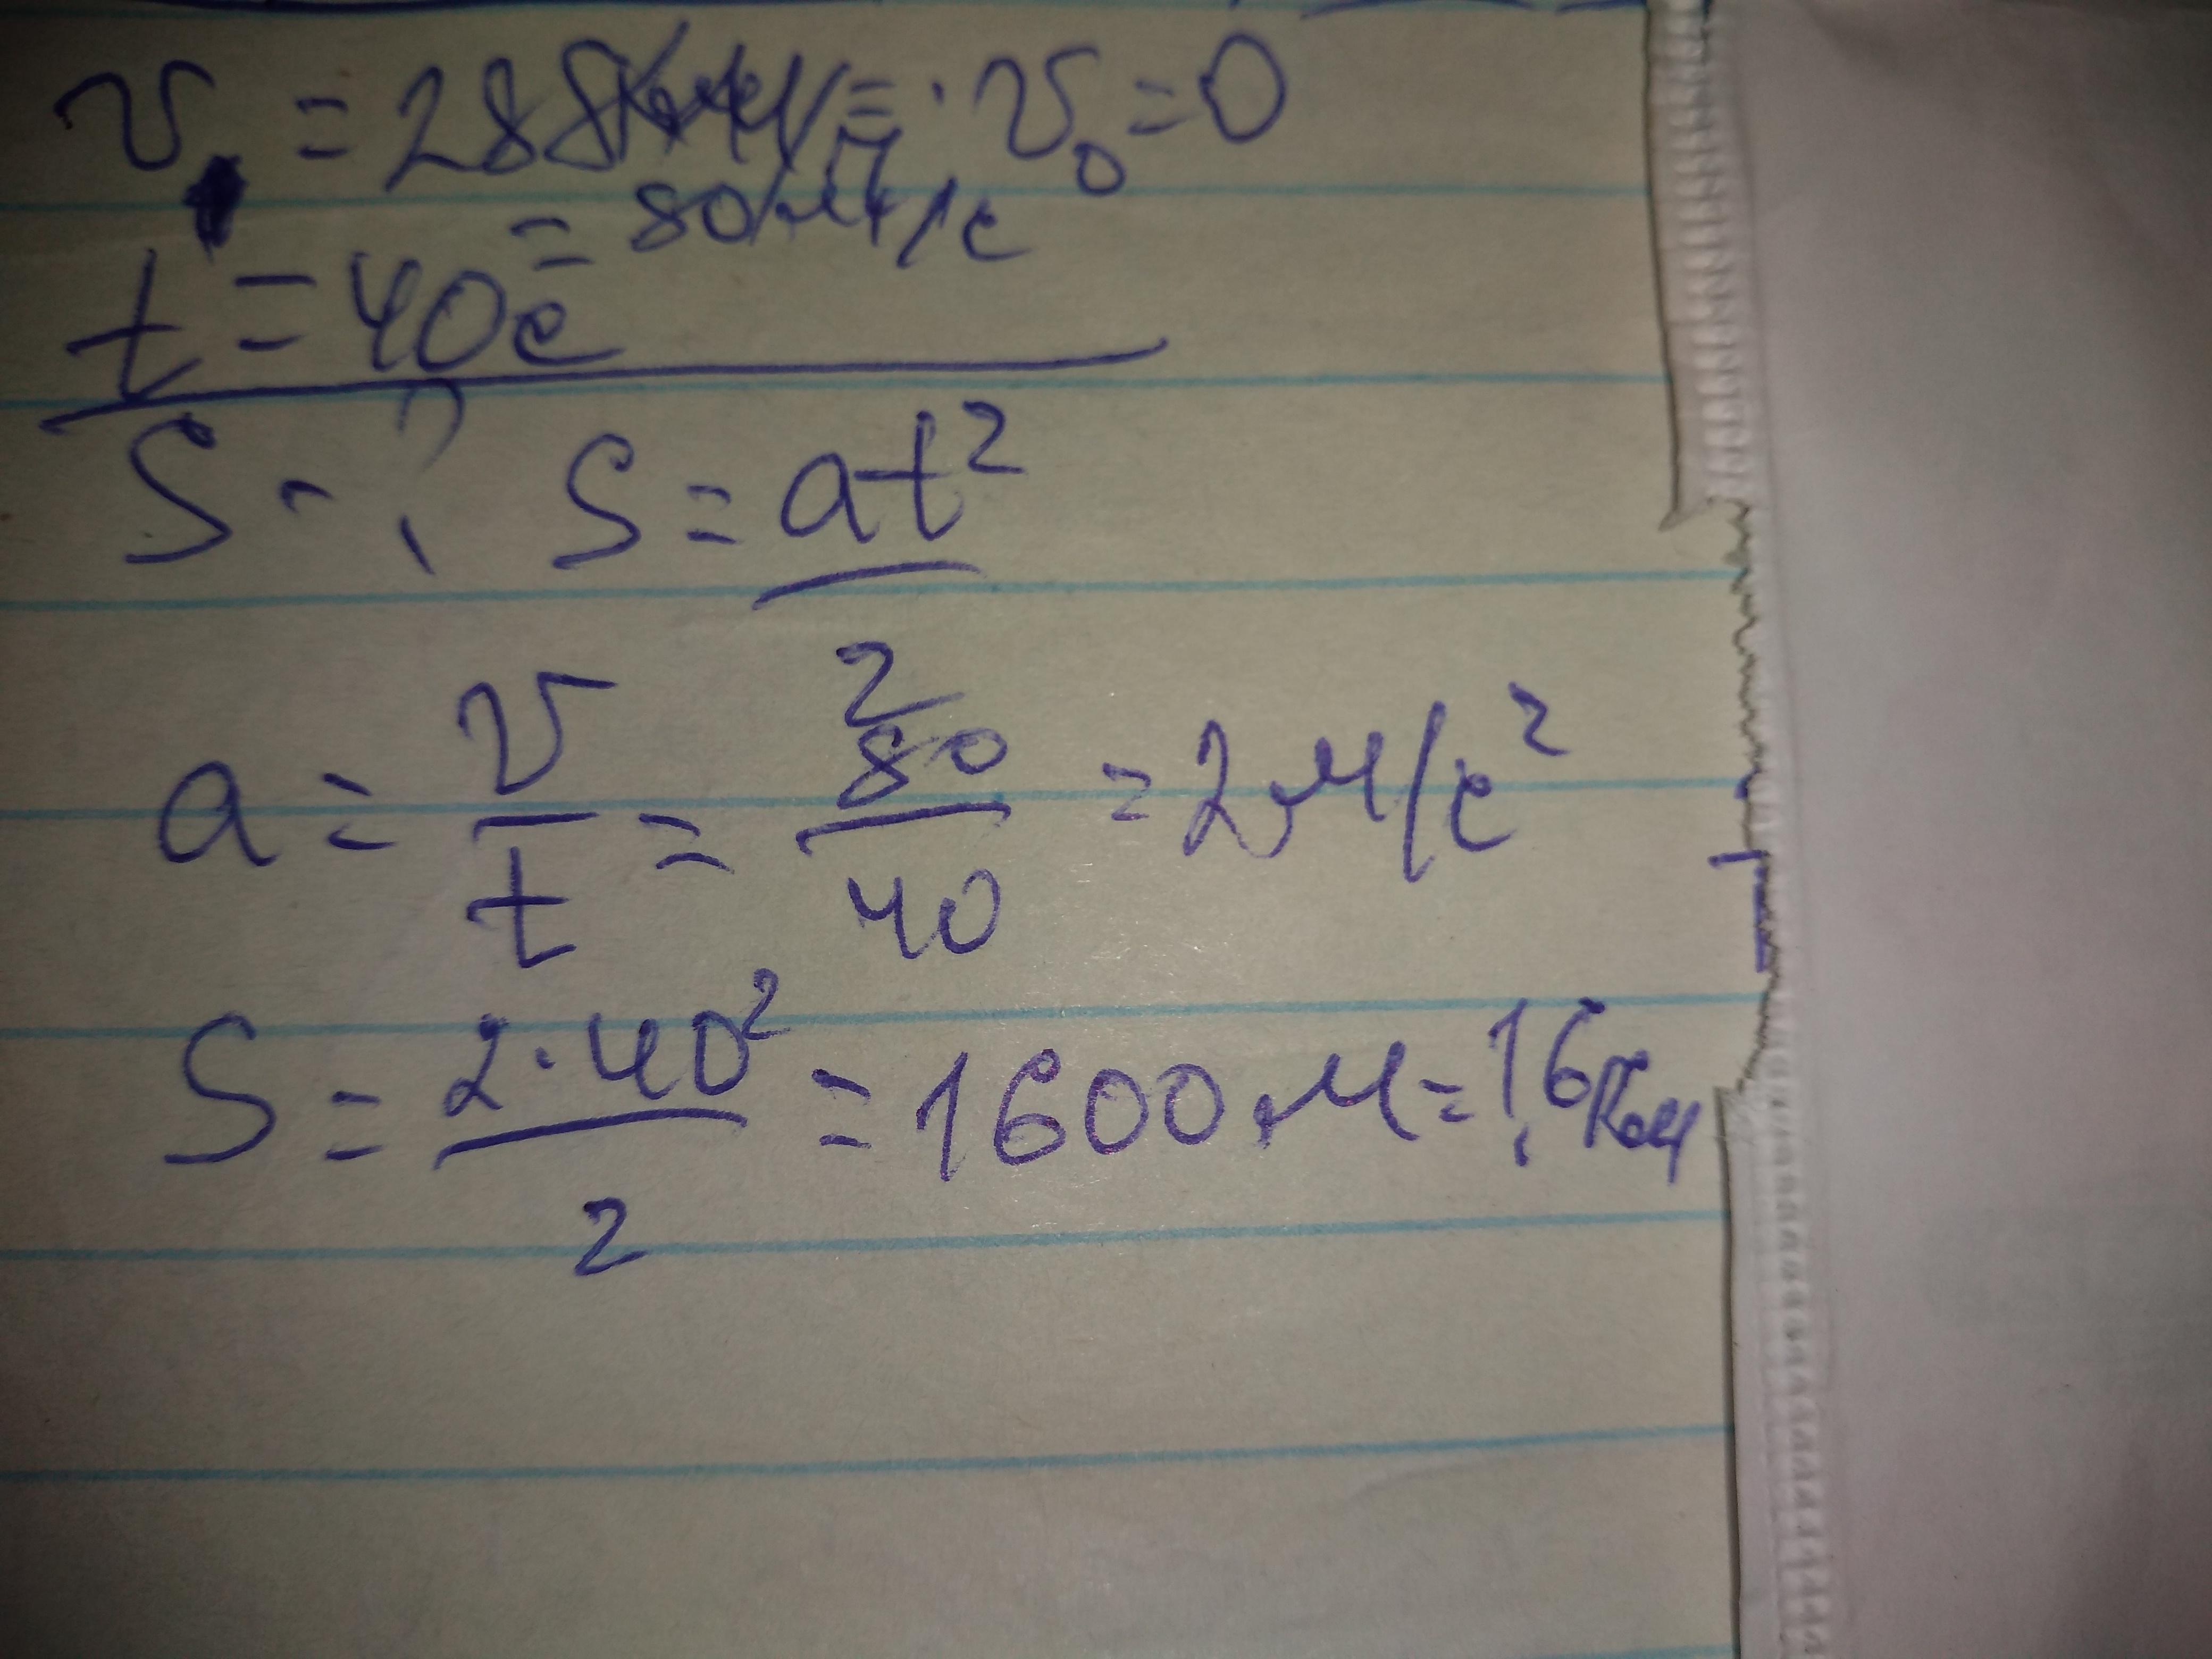 v = 288 км/ч = v₀ = 0
= 80 м/с
t = 40с
S - ? S = at²
2
a = v/t = 80/40 = 2 м/с²
S = 2·40²/2 = 1600 м = 1,6 км